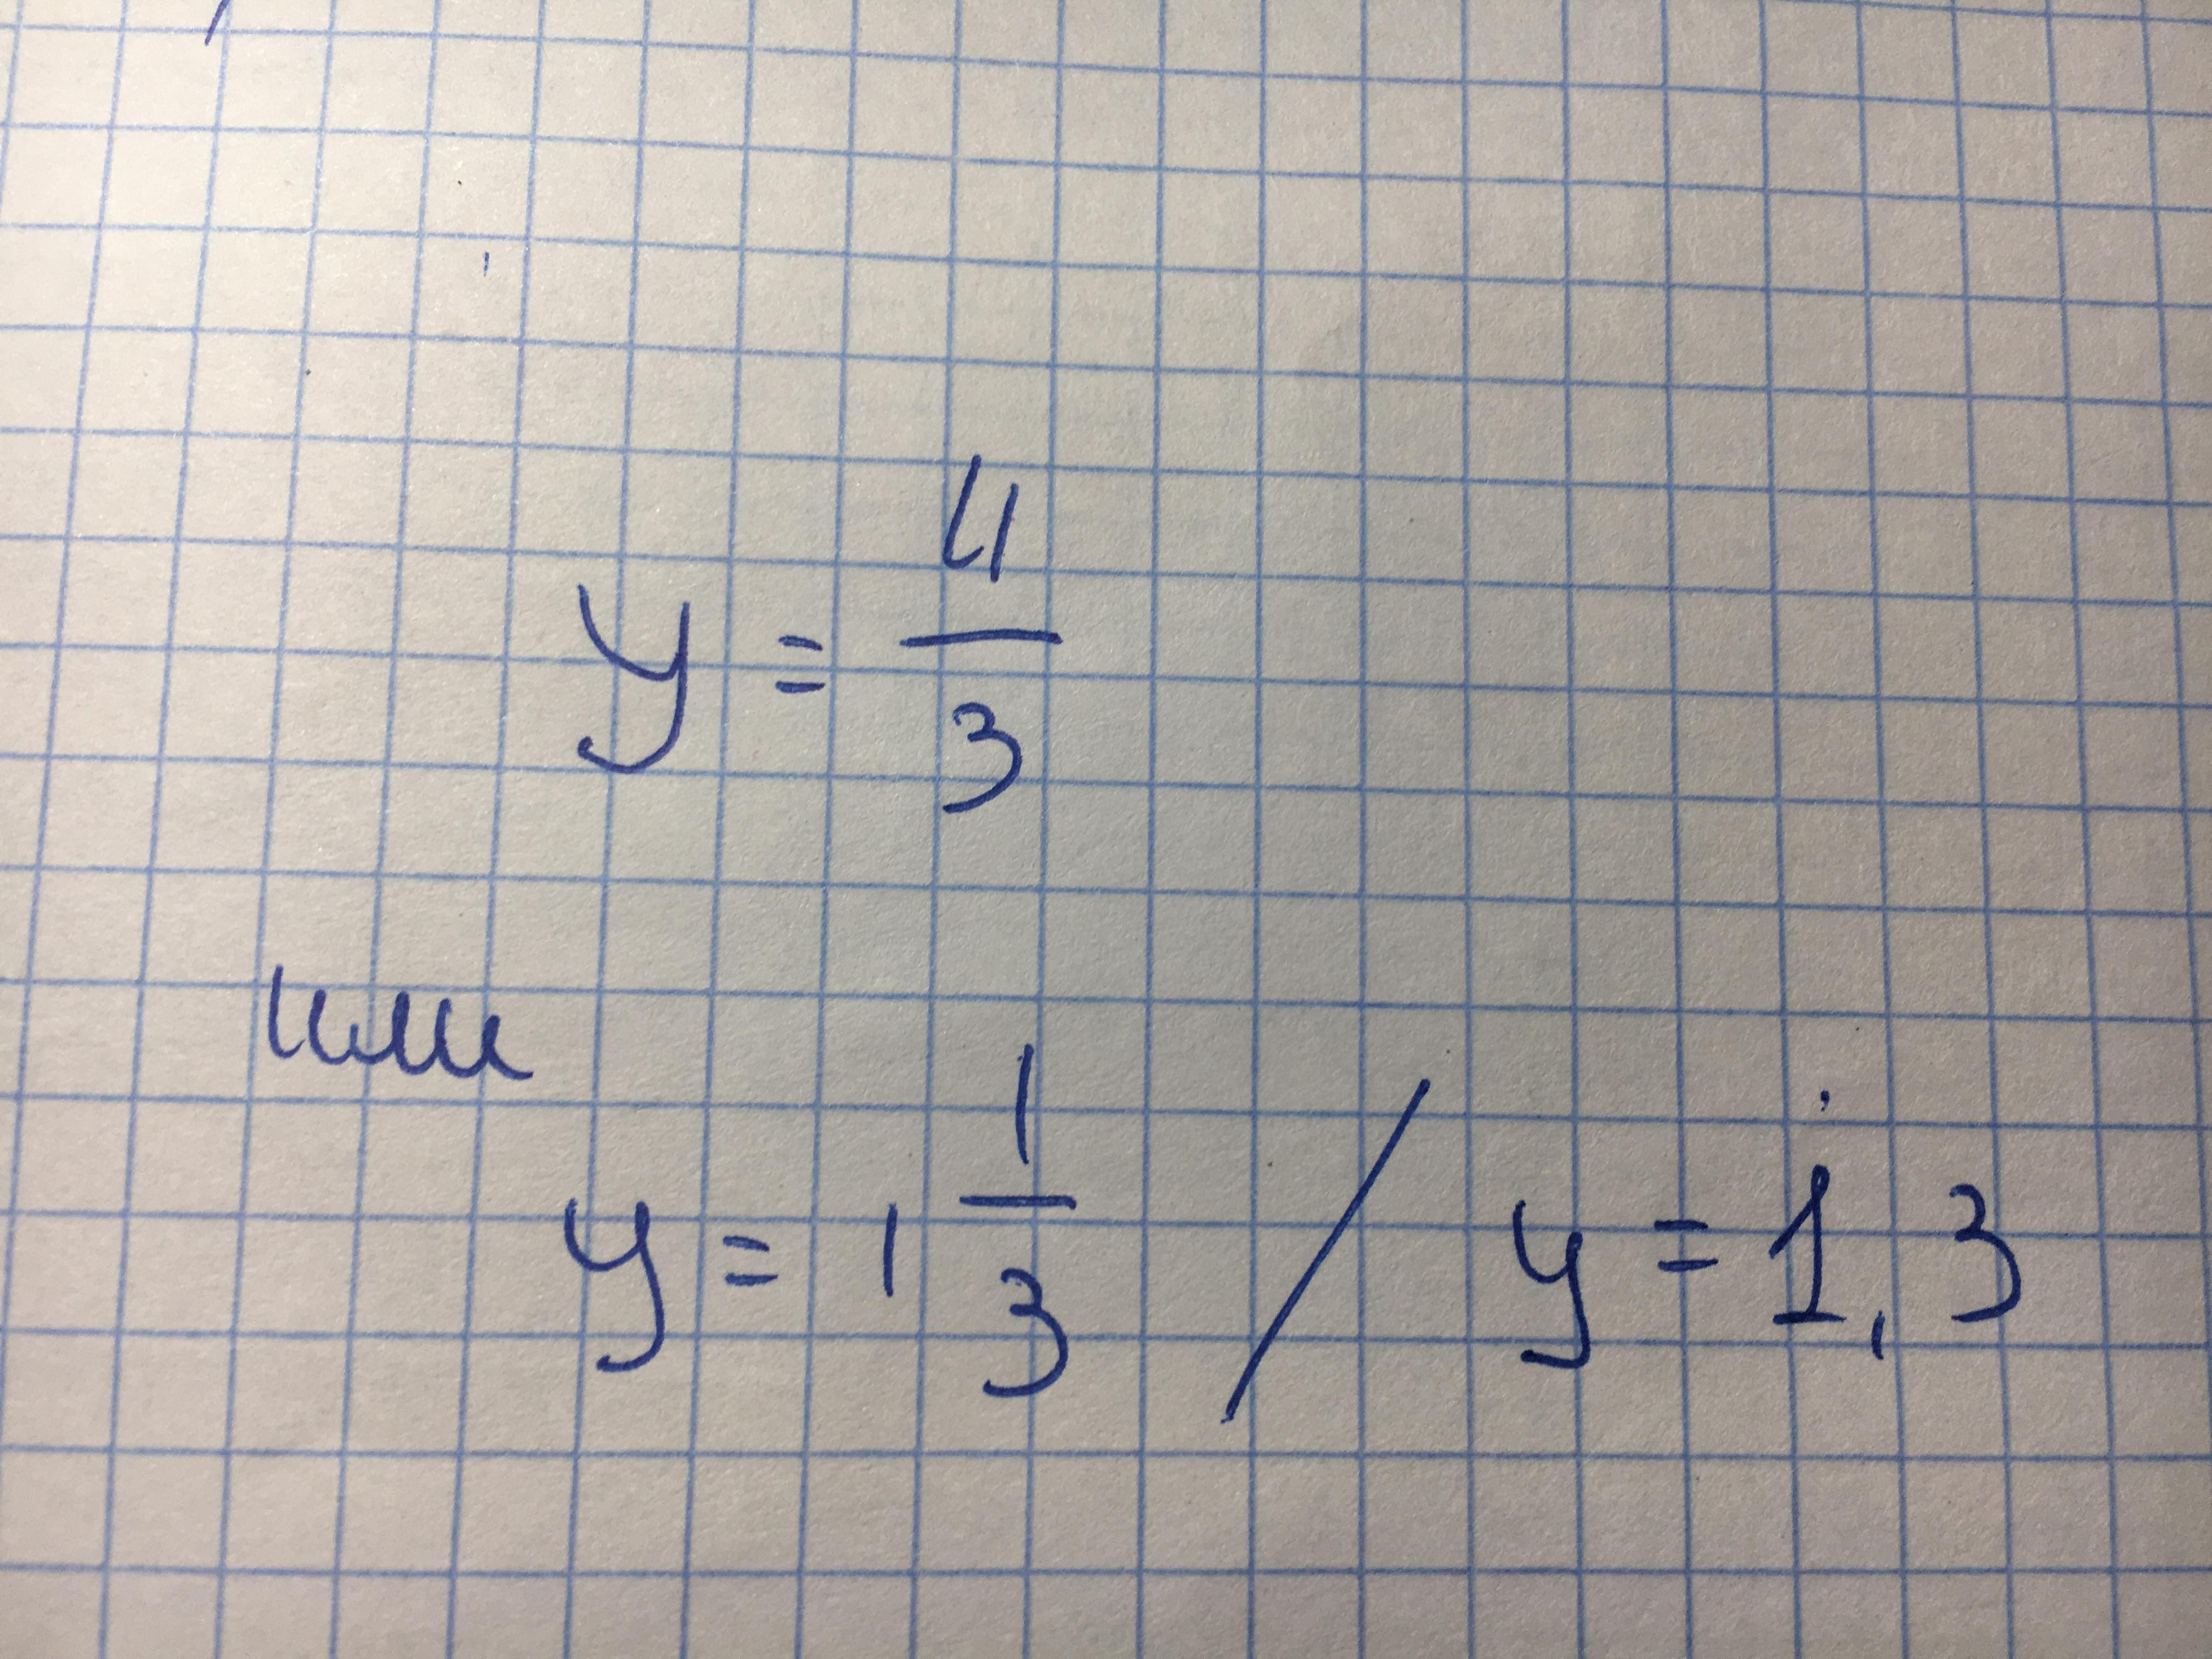 y = 4/3
или
y = 1 1/3 / y = 1,3